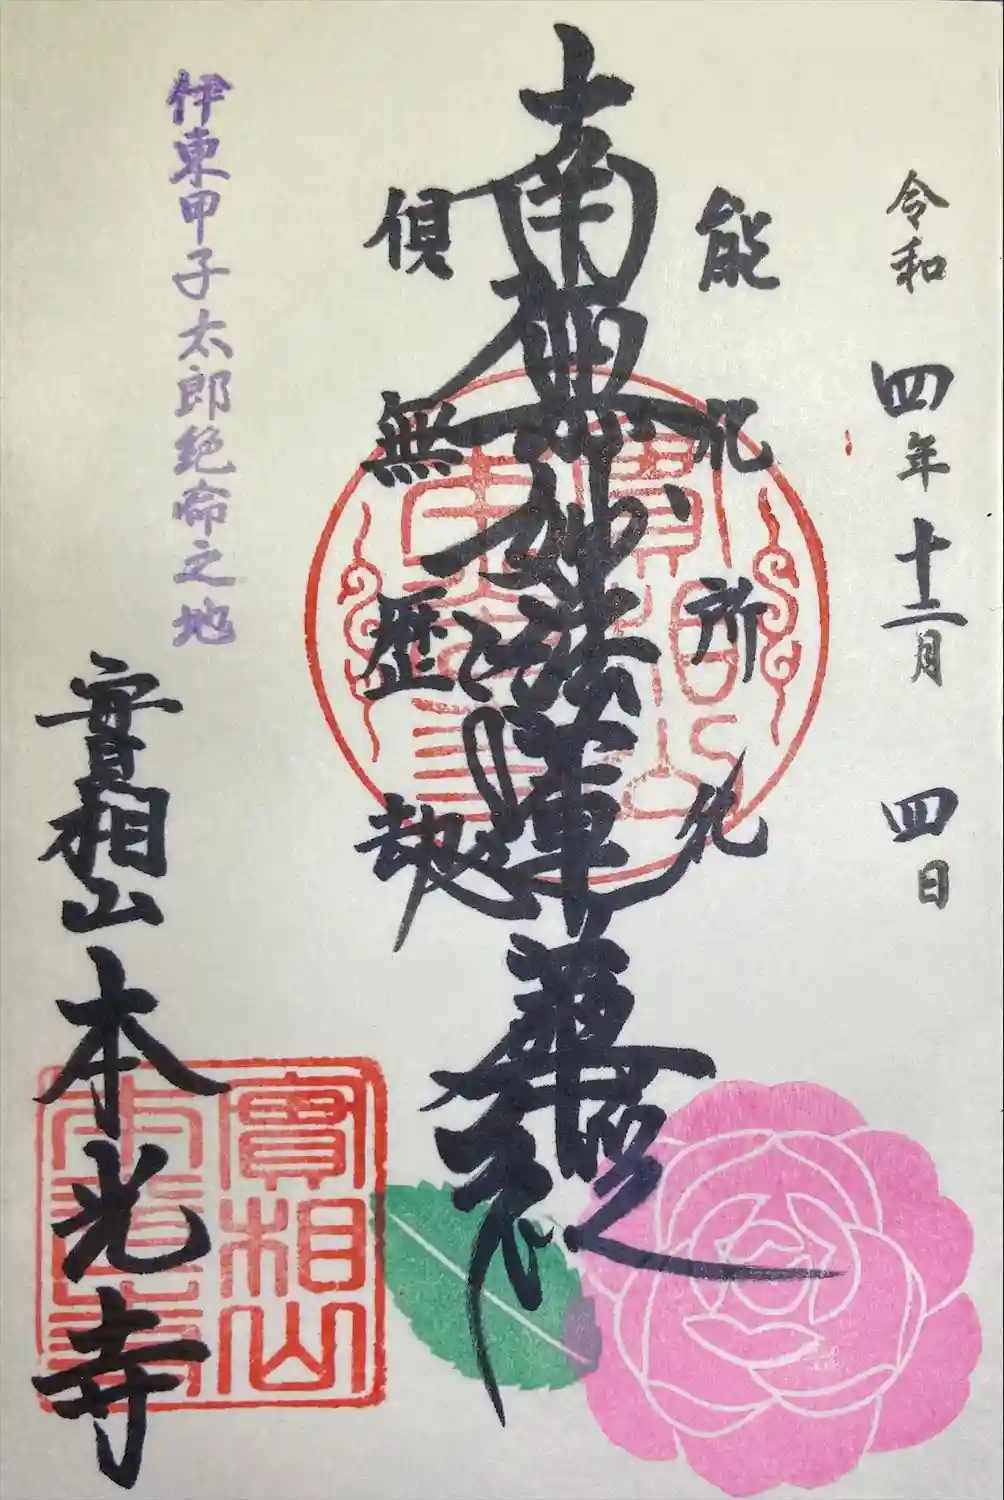 令和四年十二月四日
能化所化
南無妙法蓮華経
倶無歴劫
伊東甲子太郎絶命之地
實相山本光寺
實相山
本光寺